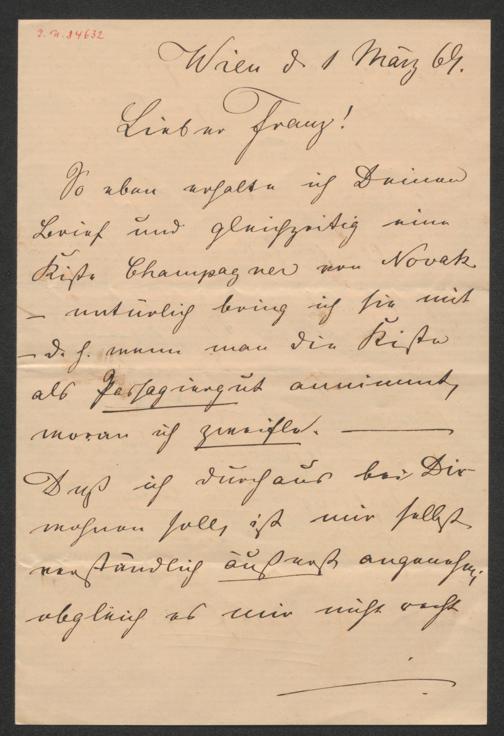 I. N. 84632
Wien d 1 März 69.
Lieber Franz!
So eben erhalte ich Deinen
Brief und gleichzeitig eine
Kiste Champagner von Novak
– natürlich bring ich sie mit
– d. h. wenn man die Kiste
als Passagiergut annimmt,
woran ich zweifle. —
Daß ich durchaus bei Dir
wohnen soll, ist mir selbst
verständlich äußerst angenehm;
obgleich es mir nicht recht